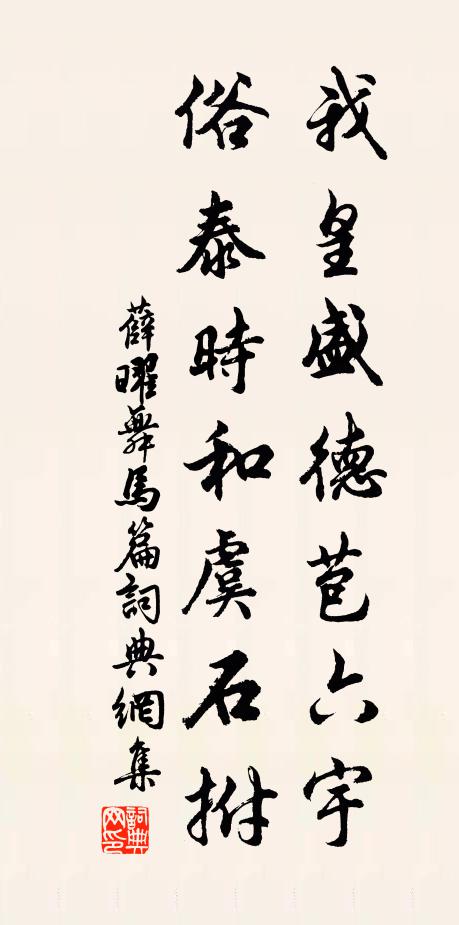 我皇盛德苞六宇
俗泰時和虞石拊
薛曜舞馬篇詞典網集
詞典网印